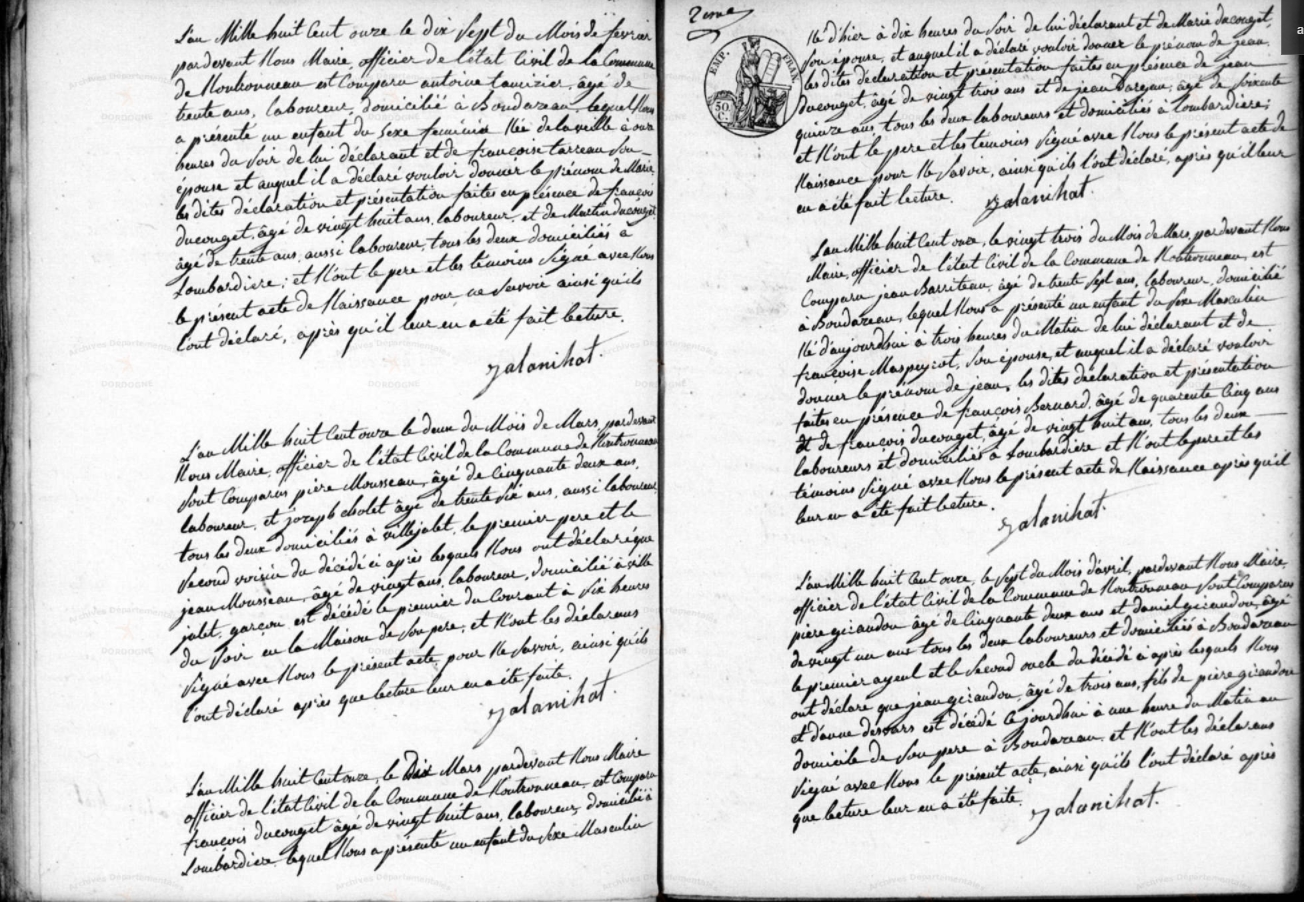 L'an Mille huit Cent onze le dix Sept du Mois de fevrier
pardevant Nous Maire officier de l'état Civil de la Commune
de Montronneau est Comparu antoine tamizier, âgé de
trente ans, laboureur, domicilié à Boudazeau, lequel Nous
a présenté un enfant du Sexe feminin Née de la veille à onze
heures du Soir de lui déclarant et de françoise tarreau Son
epouse et auquel il a déclaré vouloir donner le prénom de Marie,
les dites déclaration et présentation faites en présence de françois
ducouget, âgé de vingt huit ans, laboureur, et de Martin ducouget
âgé de trente ans, aussi laboureur, tous les deux domiciliés à
Lombardiere; et N'ont le pere et les témoins Signé avec Nous
le présent acte de Naissance pour ne Savoir ainsi qu'ils
l'ont déclaré, après qu'il leur en a été fait lecture.
Lalanihat
L'an Mille huit Cent onze le deux du Mois de Mars, pardevant
Nous Maire, officier de l'état Civil de la Commune de Montronneau
Sont Comparus pière Mousseau, âgé de Cinquante deux ans,
laboureur, et jozeph cholet âgé de trente Six ans, aussi laboureur,
tous les deux domiciliés à villejalet, le premier pere et le
Second voisin du décédé ci après lesquels Nous ont déclaré que
jean Mousseau, âgé de vingt ans, laboureur, domicilié à ville
jalet, garçon, est décédé le premier du Courant à Six heures
du Soir en la Maison de Son pere; et N'ont les déclarans
Signé avec Nous le présent acte, pour Ne Savoir, ainsi qu'ils
l'ont déclaré après que lecture leur en a été faite.
Lalanihat
L'an Mille huit Cent onze, le Dix Mars, pardevant Nous Maire
officier de l'état Civil de la Commune de Montronneau, est Comparu
françois ducouget âgé de vingt huit ans, laboureur, domicilié à
Lombardiere lequel Nous a présenté un enfant du Sexe Masculin
2eme
EMP. FRAN.
50 C.
Né d'hier à dix heures du Soir de lui déclarant et de Marie ducouget,
Son épouse, et auquel il a déclaré vouloir donner le prénom de jean
les dites déclaration et présentation faites en présence de jean
ducouget, âgé de vingt trois ans et de jean âgé de Soixente
quinze ans, tous les deux laboureurs et domiciliés à Lombardiere;
et N'ont le pere et les temoins Signé avec Nous le présent acte de
Naissance pour Ne Savoir, ainsi qu'ils l'ont déclaré, après qu'il leur
en a été fait lecture.
Lalanihat
L'an Mille huit Cent onze, le vingt trois du Mois de Mars, pardevant Nous
Maire, officier de l'état Civil de la Commune de Montronneau, est
Comparu jean Barriteau, âgé de trente Sept ans, laboureur, domicilié
à Boudazeau, lequel Nous a présenté un enfant du Sexe Masculin
Né d'aujourdhui à trois heures du Matin de lui déclarant et de
françoise Maspeyrot, Son épouse, et auquel il a déclaré vouloir
donner le prénom de jean, les dites déclaration et présentation
faites en présence de françois Bernard, âgé de quarente Cinq ans
Et de françois ducouget, âgé de vingt huit ans, tous les deux
laboureurs et domiciliés à Lombardiere et N'ont le pere et les
témoins Signé avec Nous le présent acte de Naissance après qu'il
leur en a été fait lecture.
Lalanihat
L'an Mille huit Cent onze, le Sept du Mois d'avril, pardevant Nous Maire,
officier de l'état Civil de la Commune de Montronneau Sont Comparus
pière giraudou âgé de Cinquante deux ans et daniel giraudou, âgé
de vingt un ans tous les deux laboureurs et domiciliés à Boudazeau
le premier ayeul et le Second oncle du décédé ci après lesquels Nous
ont déclaré que jean giraudou, âgé de trois ans, fils de pière giraudou
et d'anne est décédé Cejourdhui à une heure du Matin au
domicile de Son pere à Boudazeau, et N'ont les déclarans
Signé avec Nous le présent acte, ainsi qu'ils l'ont déclaré après
que lecture leur en a été faite.
Lalanihat